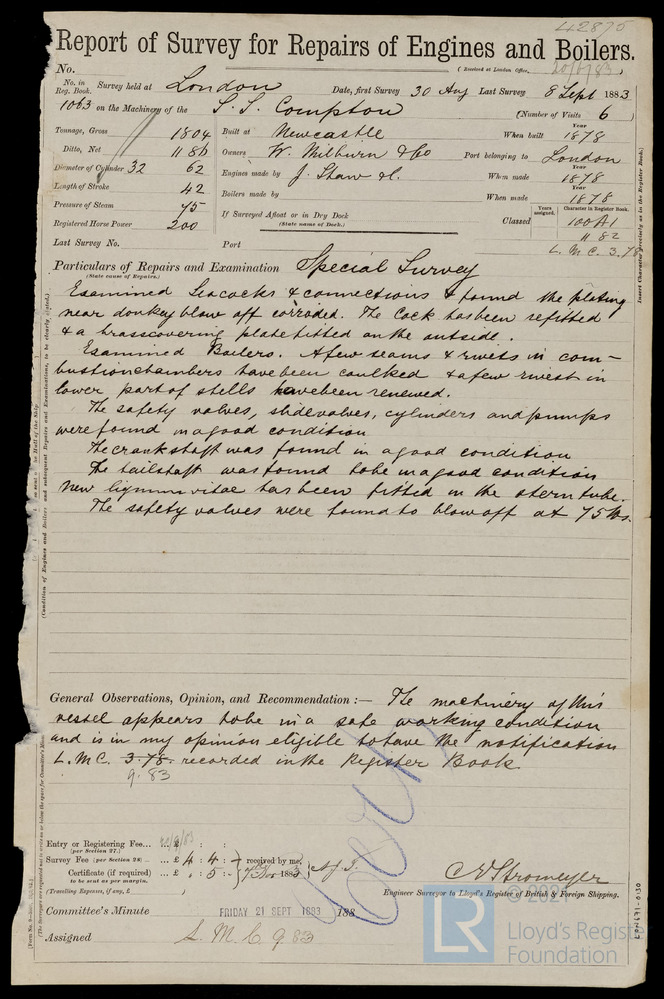 42875
Report of Survey for Repairs of Engines and Boilers.
No. (Received at London Office, 20/9/83)
No. in Reg. Book. Survey held at London Date, first Survey 30 Aug Last Survey 8 Sept 1883
1063 on the Machinery of the S.S. Compton (Number of Visits 6)
Tonnage, Gross 1804 Built at Newcastle When built Year 1878
Ditto, Net 1180 Owners W. Milburn & Co Port belonging to London
Diameter of Cylinder 32 62 Engines made by J. Shaw & When made Year 1878
Length of Stroke 42 Boilers made by When made Year 1878
Pressure of Steam 75 If Surveyed Afloat or in Dry Dock Classed Years assigned. Character in Register Book. 100A1
Registered Horse Power 200 (State name of Dock.) 11 82
Last Survey No. Port L. M. C. 3.78
Insert Character precisely as in the Register Book.
Particulars of Repairs and Examination Special Survey
(State cause of Repairs.)
Examined Seacocks & connections & found the plating
near donkey blow off corroded. The Cock has been refitted
& a brass covering plate fitted on the outside.
Examined Boilers. A few seams & rivets in com-
bustion chambers have been caulked & a few rivets in
lower part of shells have been renewed.
The safety valves, slide valves, cylinders and pumps
were found in a good condition
The crankshaft was found in a good condition
The tailshaft was found to be in a good condition
New lignum vitae has been fitted in the stern tube.
The safety valves were found to blow off at 75 lbs.
(Condition of Engines and Boilers and subsequent Repairs and Examinations, to be clearly stated.)
General Observations, Opinion, and Recommendation :— The machinery of this
vessel appears to be in a safe working condition
and is in my opinion eligible to have the notification
L.M.C. 3.78. recorded in the Register Book
9.83
Entry or Registering Fee... ... £
(per Section 27.)
Survey Fee (per Section 28) ... ... £ 4 : 4 : received by me,
Certificate (if required) ... £ : 5 : 1883
to be sent as per margin.
(Travelling Expenses, if any, £ )
C E Stromeyer
Engineer Surveyor to Lloyd's Register of British & Foreign Shipping.
Committee's Minute FRIDAY 21 SEPT 1883 188
Assigned L. M. C. 9.83
LR
Lloyd's Register
Foundation